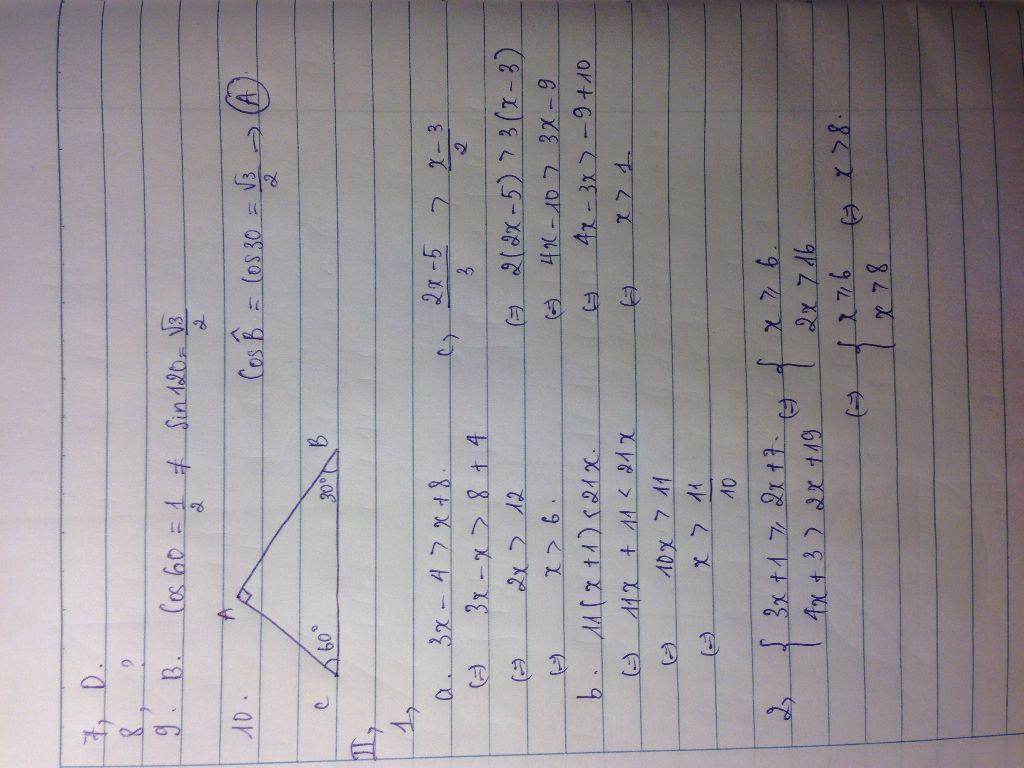 7, D.
8, ?
9. B. Cos 60 = 1/2 ≠ Sin 120 = √3/2
10.
A
C 60°
30° B
Cos B̂ = Cos 30 = √3/2 → (A)
II,
1,
a. 3x - 4 > x + 8.
(=) 3x - x > 8 + 4
(=) 2x > 12
(=) x > 6.
b. 11(x + 1) < 21x.
(=) 11x + 11 < 21x
(=) 10x > 11
(=) x > 11/10
c, (2x - 5)/3 > (x - 3)/2
(=) 2(2x - 5) > 3(x - 3)
(=) 4x - 10 > 3x - 9
(=) 4x - 3x > -9 + 10
(=) x > 1
2, { 3x + 1 ≥ 2x + 7. (=) { x ≥ 6.
4x + 3 > 2x + 19 2x > 16
(=) { x ≥ 6 (=) x > 8.
x > 8